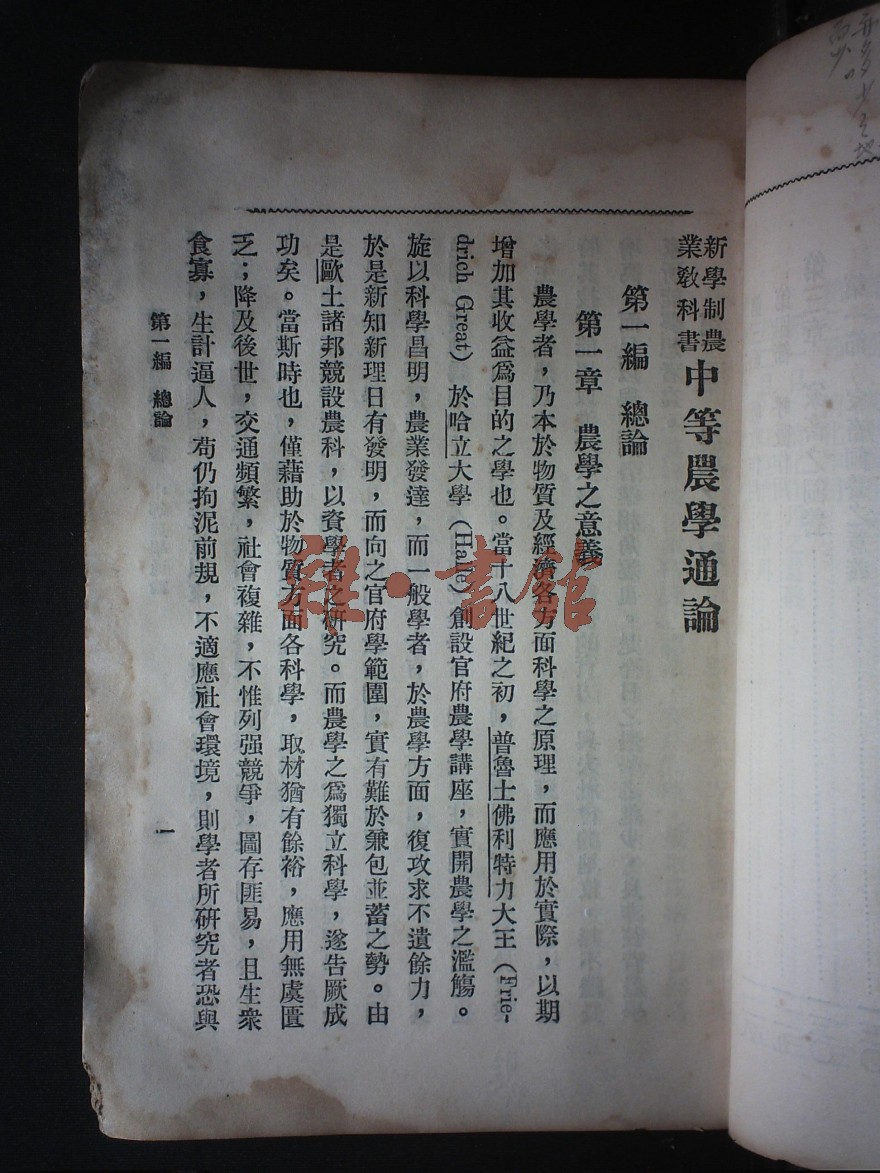 新學制農
業教科書
中等農學通論
第一編　總論
第一章　農學之意義
農學者，乃本於物質及經濟各方面科學之原理，而應用於實際，以期
增加其收益爲目的之學也。當十八世紀之初，普魯士佛利特力大王（Frie-
drich Great）於哈立大學（Halle）創設官府農學講座，實開農學之濫觴。
旋以科學昌明，農業發達，而一般學者，於農學方面，復攻求不遺餘力，
於是新知新理日有發明，而向之官府學範圍，實有難於兼包並蓄之勢。由
是歐土諸邦競設農科，以資學者之研究。而農學之爲獨立科學，遂告厥成
功矣。當斯時也，僅藉助於物質方面各科學，取材猶有餘裕，應用無虞匱
乏；降及後世，交通頻繁，社會複雜，不惟列强競爭，圖存匪易，且生衆
食寡，生計逼人，苟仍拘泥前規，不適應社會環境，則學者所硏究者恐與
第一編　總論
一
雜·書館